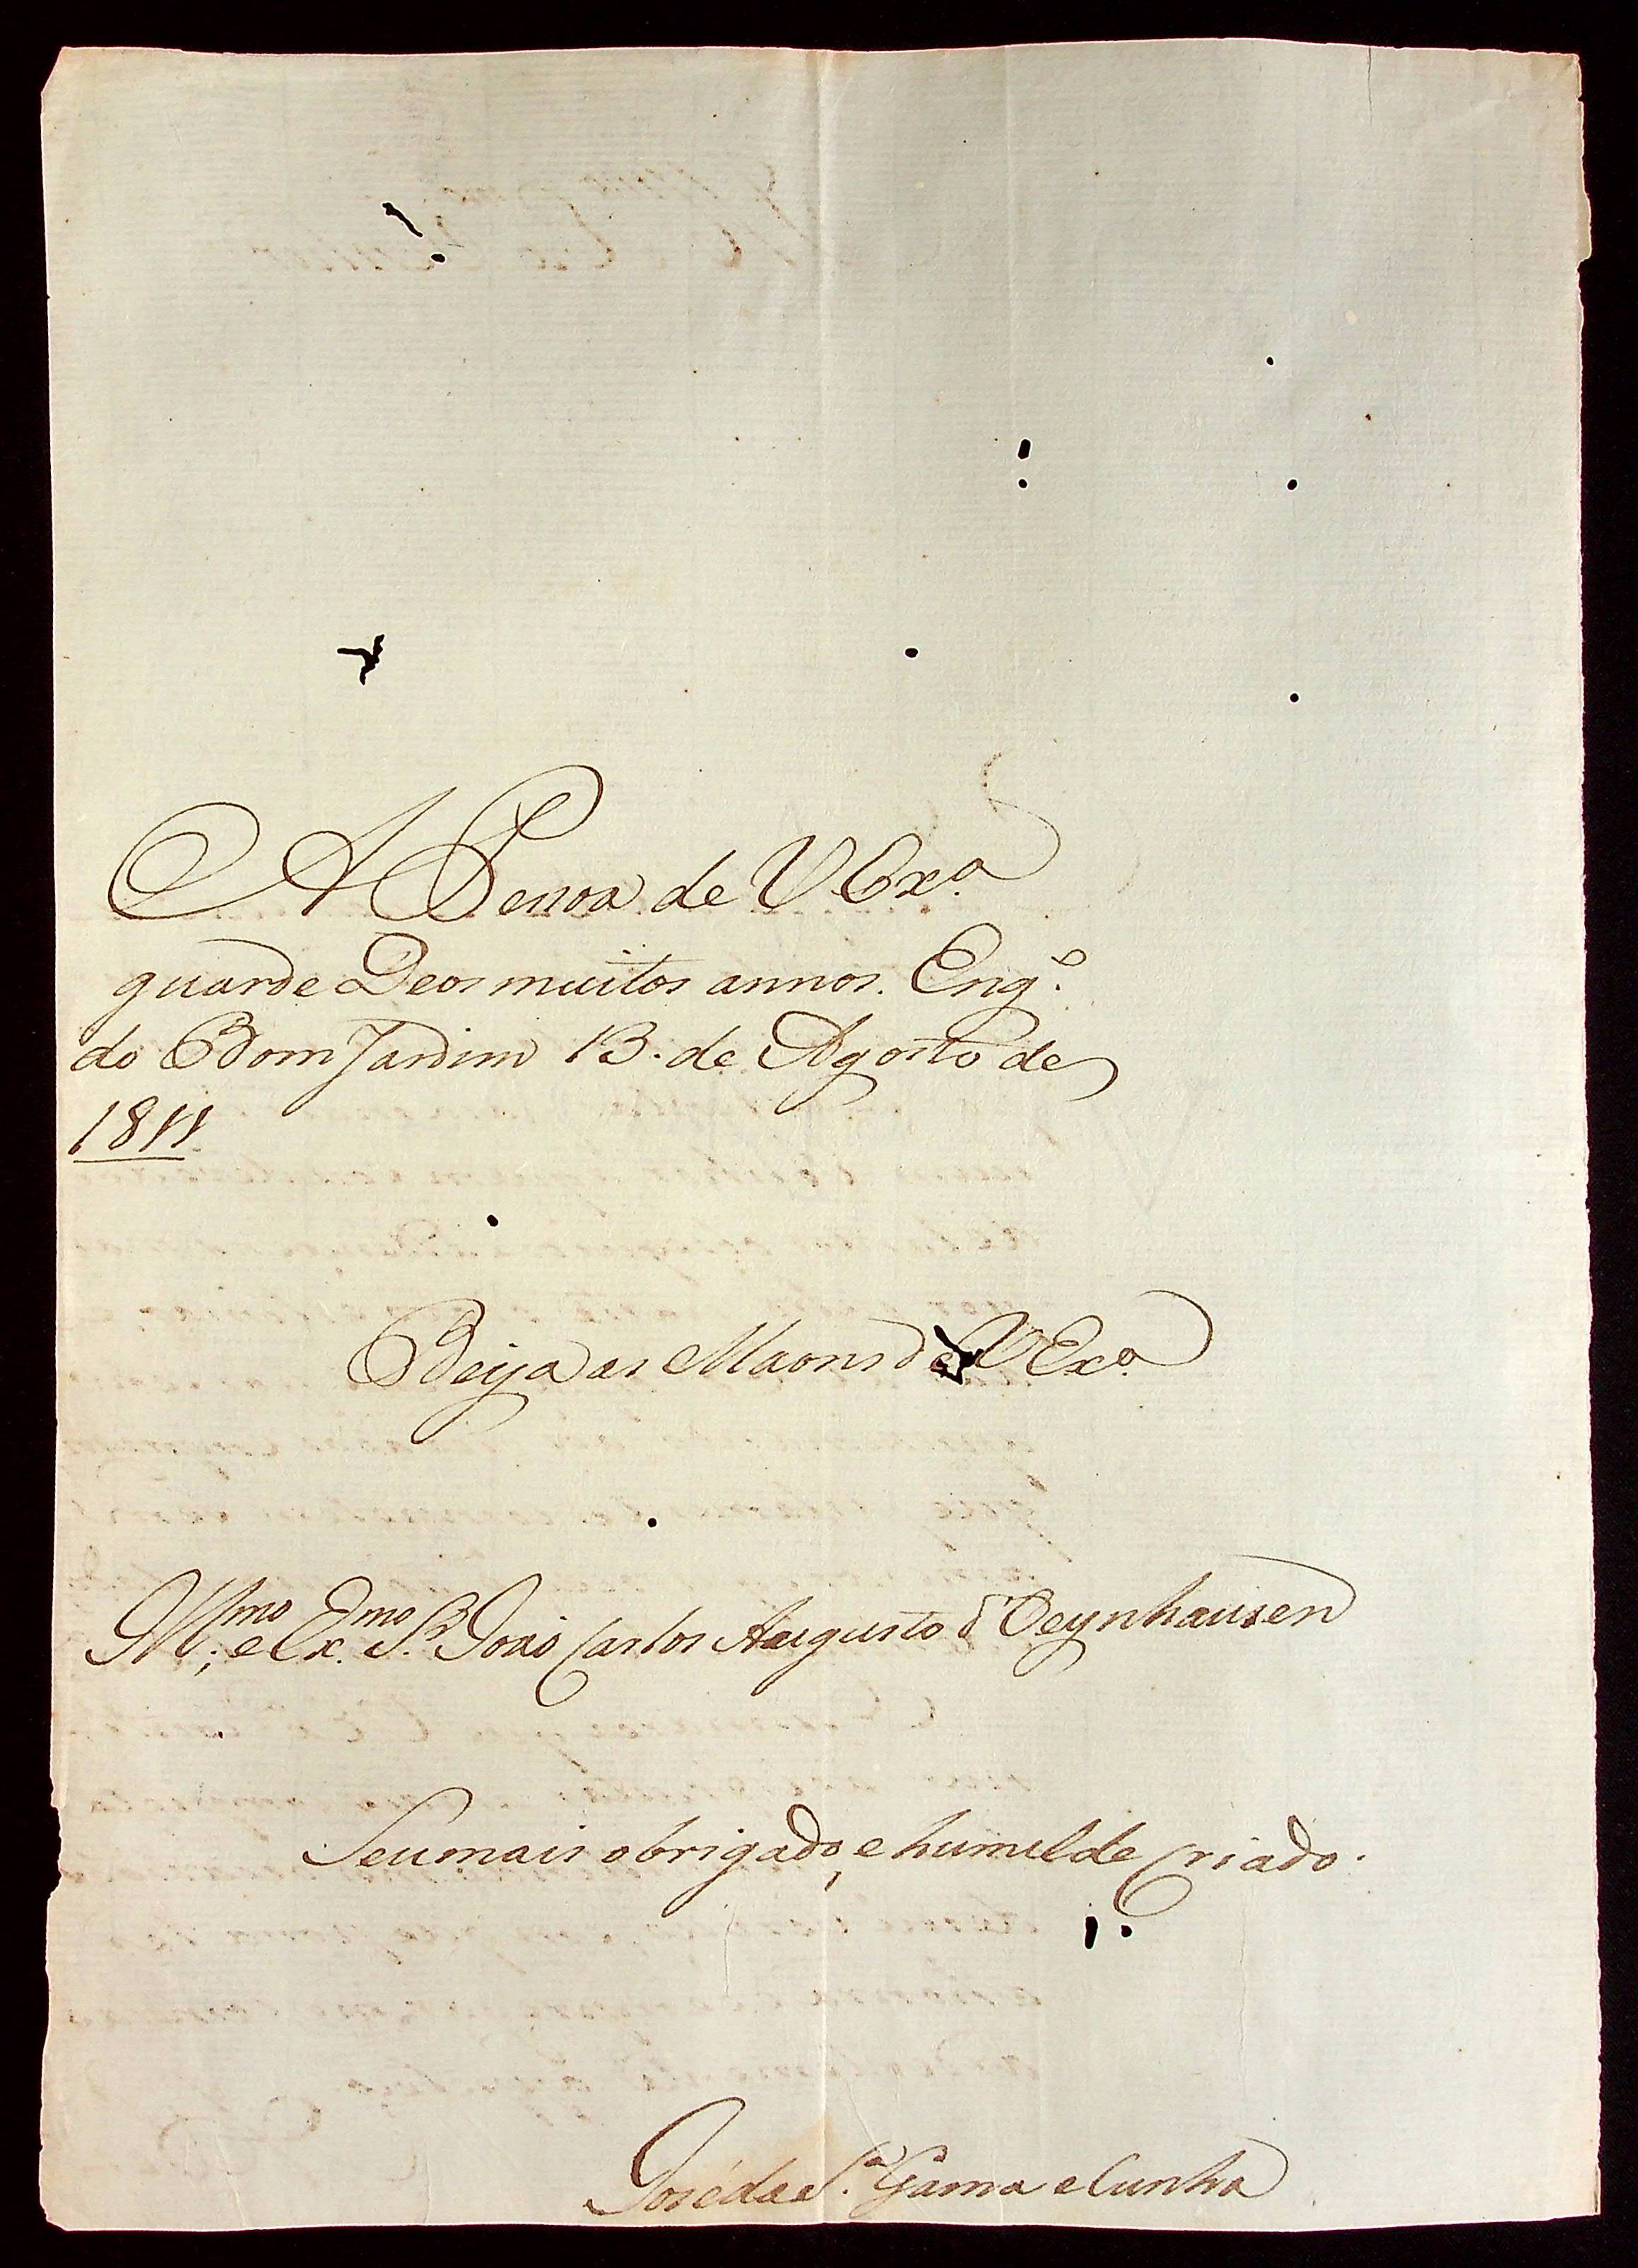 A Pessoa de VExa.
guarde Deos muitos annos. Engo.
do Bom Jardim 13. de Agosto de
1811.
Beija as Maons de VExa.
Illmo. e Exmo. Sr. João Carlos Augusto d'Oeynhausen
Seu mais obrigado, e humilde Criado.
José da Sa. Gama e Cunha